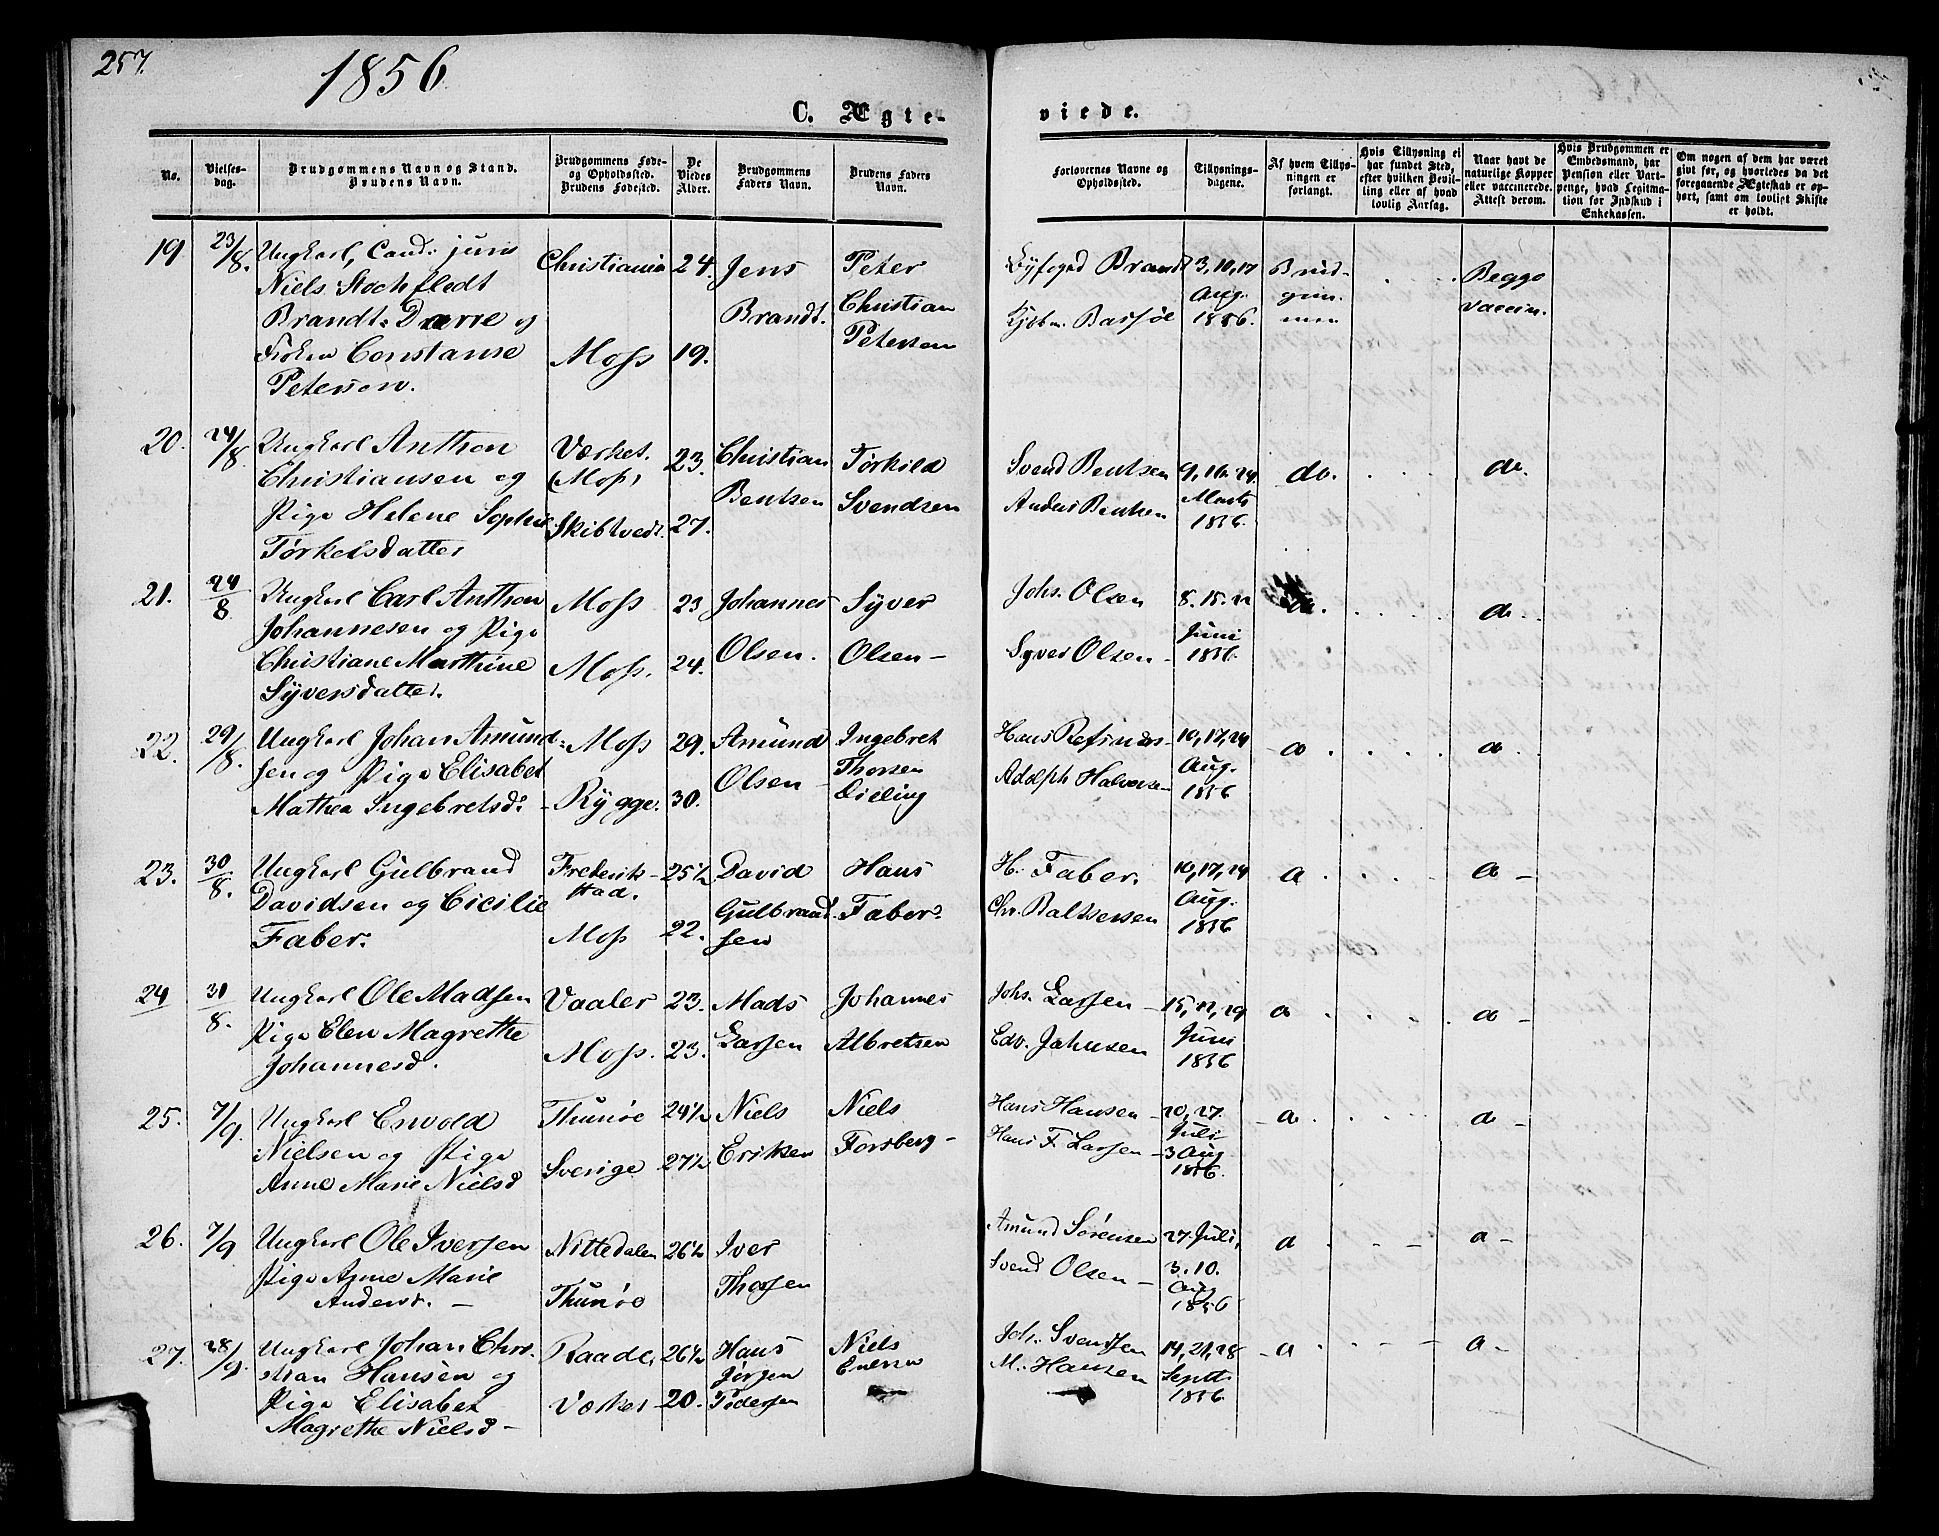 257.
1856
C. Ægte-
viede.
No.
Vielses-
dag.
Brudgommens Navn og Stand.
Brudens Navn.
Brudgommens Føde-
og Opholdssted.
Brudens Fødested.
De
Viedes
Alder.
Brudgommens
Faders Navn.
Brudens Faders
Navn.
Forlovernes Navne og
Opholdssted.
Tillysnings-
dagene.
Af hvem Tillys-
ningen er
forlangt.
Hvis Tillysning ei
har fundet Sted,
efter hvilken Bevil-
ling eller af hvad
lovlig Aarsag.
Naar havt de
naturlige Kopper
eller vaccinerede.
Attest derom.
Hvis Brudgommen er
Embedsmand, har
Pension eller Vart-
penge, hvad Legitima-
tion for Indskud i
Enkekassen.
Om nogen af dem har været
givt før, og hvorledes da det
foregaaende Ægteskab er op-
hørt, samt om lovligt Skifte
er holdt.
19. 23/8. Ungkarl, Cand: juris Christiania 24. Jens Peter Byfoged Brandt 3, 10, 17 Brud- Begge
Niels Stochfledt Brandt. Christian Kjøbm. Aug. gom- vaccin.
Brandt Dørre og Petersen 1856. men
Frøken Constanse Moss 19.
Peterson.
20. 24/8 Ungkarl Anthon Værket. 23. Christian Torkild Svend Bentsen 9, 16, 24 do. do.
Christiansen og (Moss) Bentsen Svendsen Anders Bentsen Marts
Pige Helene Sophie Skibtvedt. 27. 1856.
Torkelsdatter
21. 24/8 Ungkarl Carl Anthon Moss 23 Johannes Syver Johs. Olsen 8. 15. 22 do. do.
Johannesen og Pige Olsen. Olsen- Syver Olsen- Juni
Christiane Marthine Moss. 24. 1856.
Syversdatter.
22. 29/8. Ungkarl Johan Amund- Moss 29. Amund Ingebret Hans Refsnes- 10, 17, 24 do do
sen og Pige Elisabet Olsen Thorsen Adolph Halvorsen Aug.
Mathea Ingebretsd: Rygge. 30. Dilling 1856
23. 30/8. Ungkarl Gulbrand Frederik- 25½ David Hans H. Faber. 10, 17, 24 do do
Davidsen og Cicilie stad. Gulbrand- Faber. Chr. Baltsersen Aug.
Faber. Moss 22. sen 1856
24 31/8. Ungkarl Ole Madsen Vaaler 23. Mads Johannes Johs. Larsen- 15, 22, 29 do do
Pige Elen Magrethe Moss. 23. Larsen Albretsen Edv. Jahnsen Juni
Johannesd. 1856
25. 7/9. Ungkarl Envold Thunøe 24½ Niels Niels Hans Hansen- 20, 27. do. do
Nielsen og Pige Sverige 27½ Eriksen Forsberg- Hans F. Larsen- Juli
Anne Marie Nielsd 3 Aug
1856.
26. 7/9 Ungkarl Ole Iversen Nittedalen 26½ Iver Amund Sørensen 27. Juli, do do
Pige Anne Marie Thunøe Thorsen Svend Olsen- 3. 10.
Andersd. Aug
1856
27. 28/9. Ungkarl Johan Chri- Raade. 26½ Hans Niels Joh. Svendsen 14, 21, 28 do. do
stian Hansen og Jørgen M. Hansen Septb.
Pige Elisabet Værket 20. Pedersen 1856.
Magrethe Nielsd-